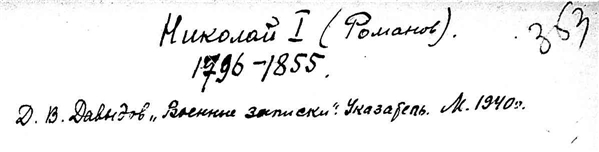 Николай I (Романов).
353
1796-1855.
Д. В. Давыдов „Военные записки". Указатель. М. 1940г.